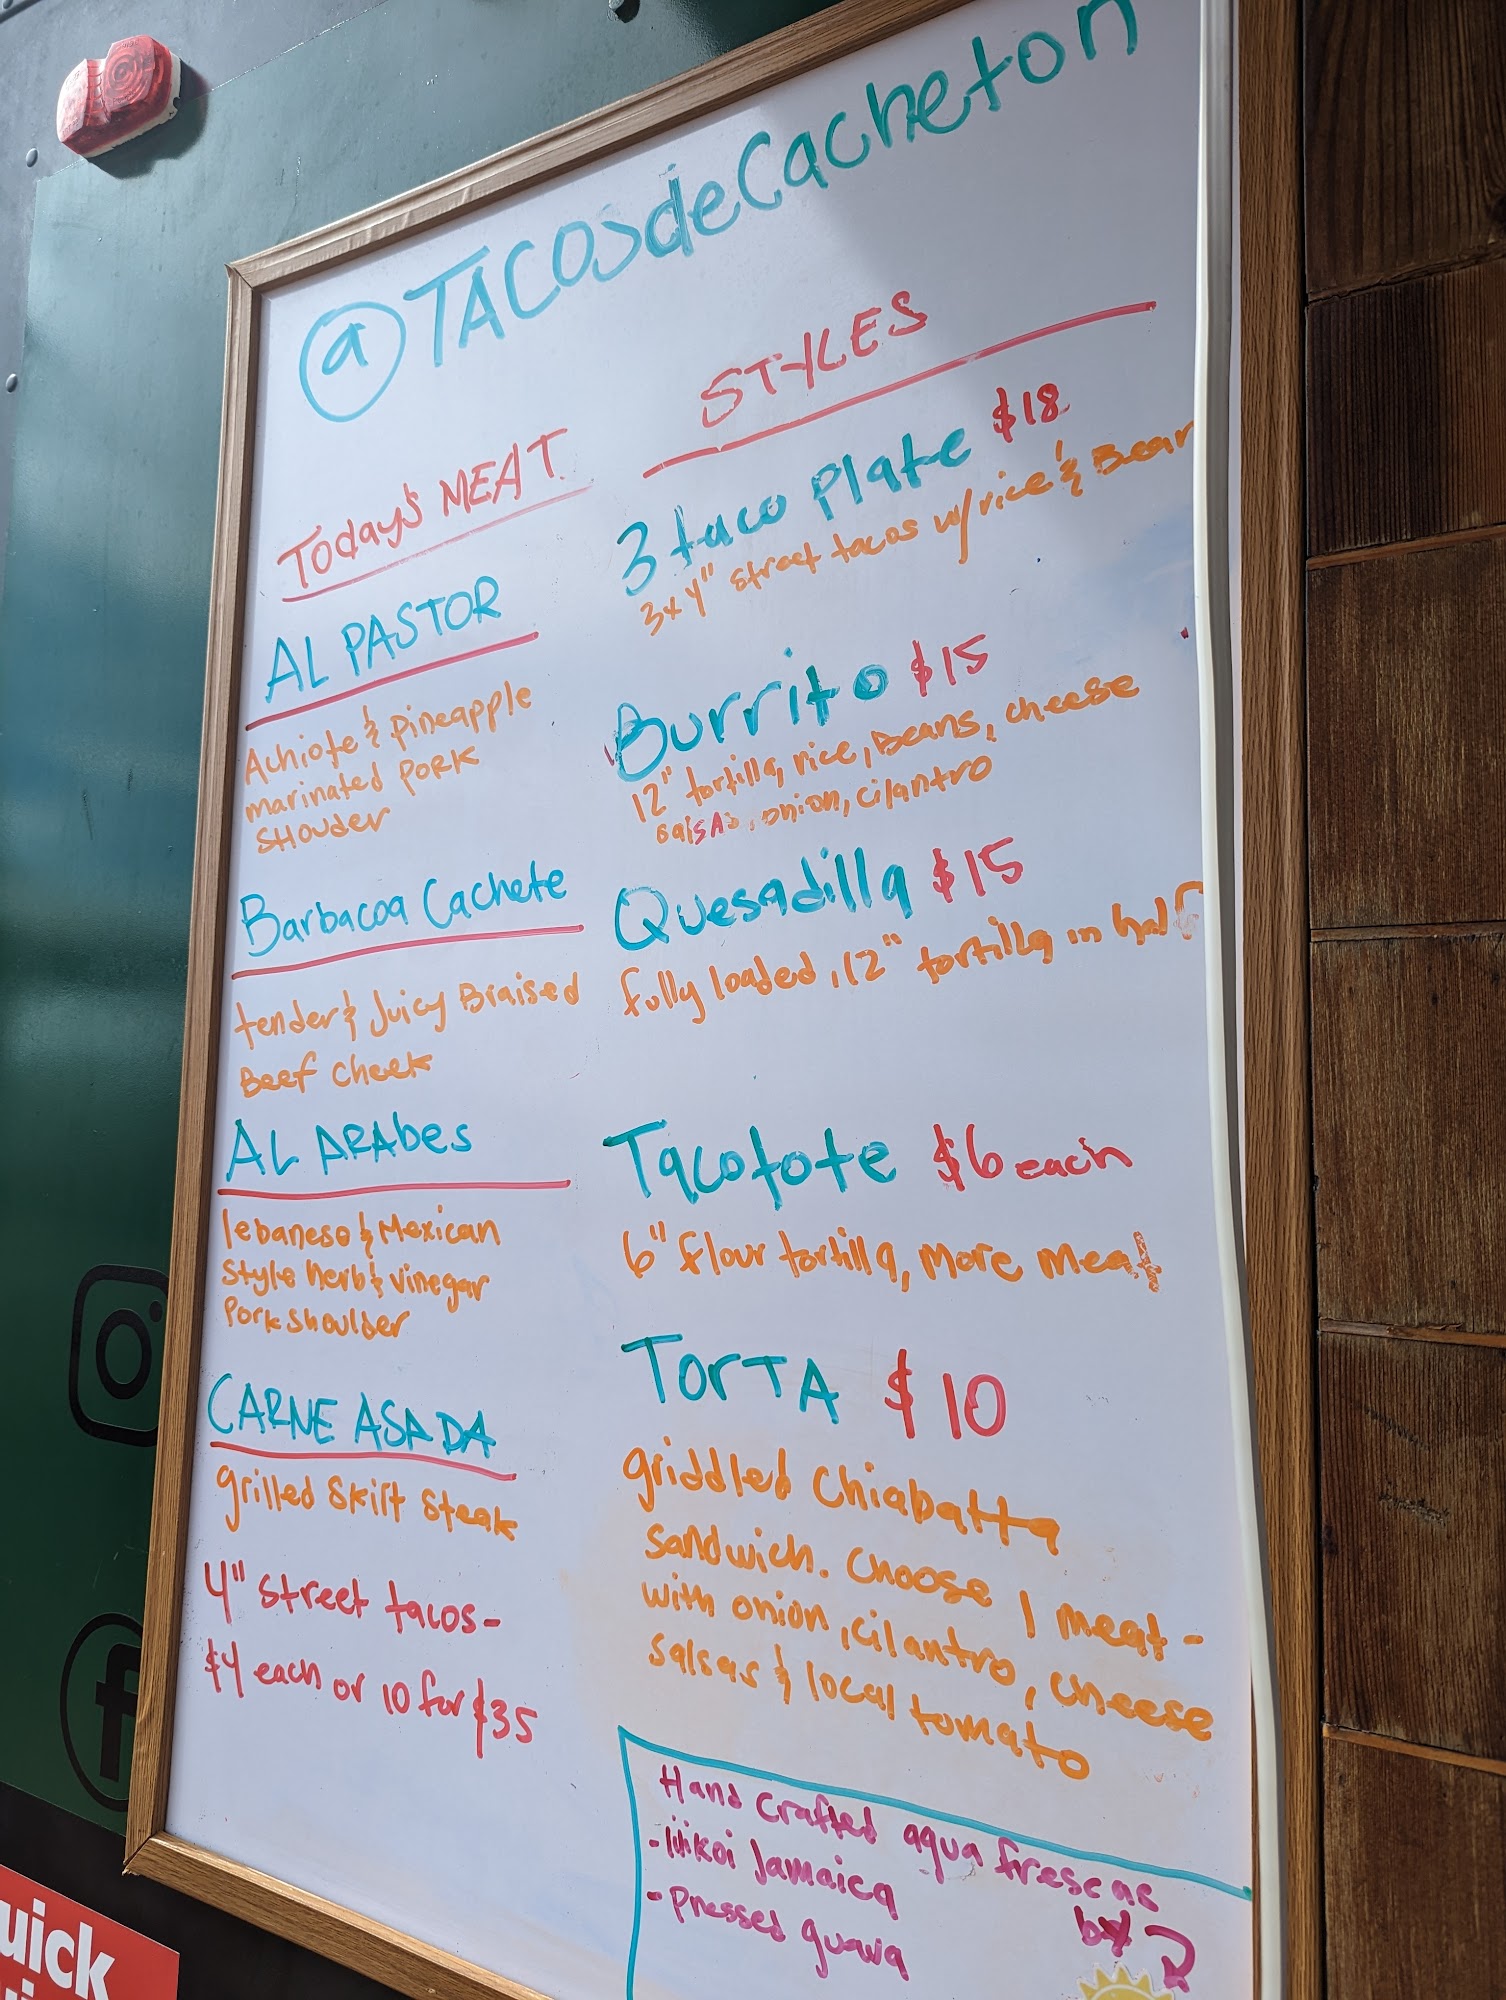 @TACOSdeCacheton
Today's MEAT
AL PASTOR
Achiote & pineapple
marinated PORK
SHOUDER
Barbacoa Cachete
tender & Juicy Braised
Beef cheek
AL ARAbes
lebanese & Mexican
style herb & vinegar
Pork shoulder
CARNE ASADA
grilled Skirt Steak
4" street tacos-
$4 each or 10 for $35
STYLES
3 taco Plate $18
3x4" street tacos w/rice & Bean
Burrito $15
12" tortilla, rice, Beans, cheese
salsas, onion, cilantro
Quesadilla $15
fully loaded, 12" tortilla in half
Tacotote $6 each
6" flour tortilla, More Meat
TORTA $10
griddled Chiabatta
sandwich. Choose 1 meat-
with onion, cilantro, cheese
salsas & local tomato
Hand Crafted aqua frescas
-lilikoi Jamaica
-Pressed guava
uick